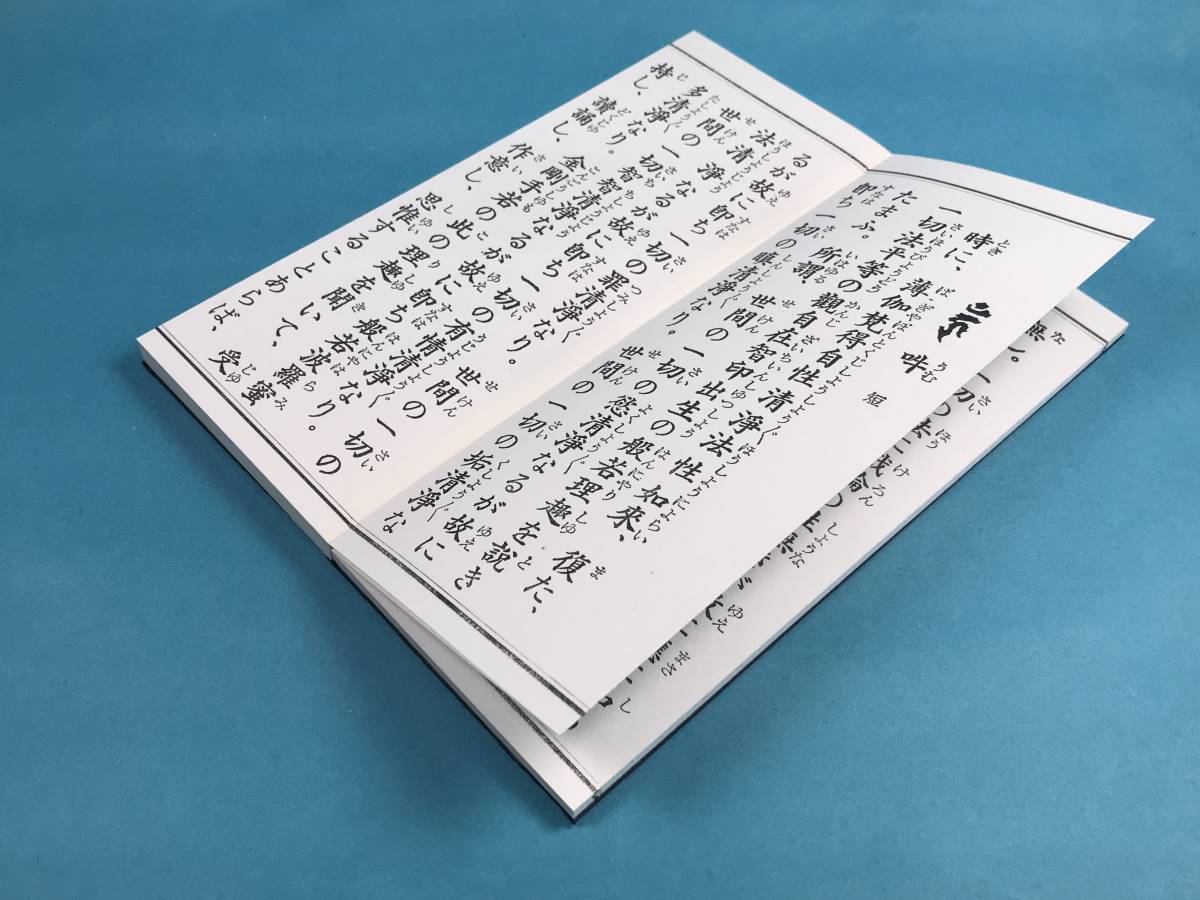 吽 短
時に、薄伽梵得自性清淨法性如來、復た、
一切法平等の觀自在智印出生の般若理趣を説き
たまふ。所謂世間の一切の慾清淨なるが故に
即ち一切の瞋清淨なり。世間の一切の垢清淨な
るが故に即ち一切の罪清淨なり。世間の一切の
法清淨なるが故に即ち一切の有情清淨なり。
世間の一切智智清淨なるが故に即ち般若波羅蜜
多清淨なり。金剛手若し此の理趣を聞いて、受
持し、讀誦し、作意し、思惟することあらば、